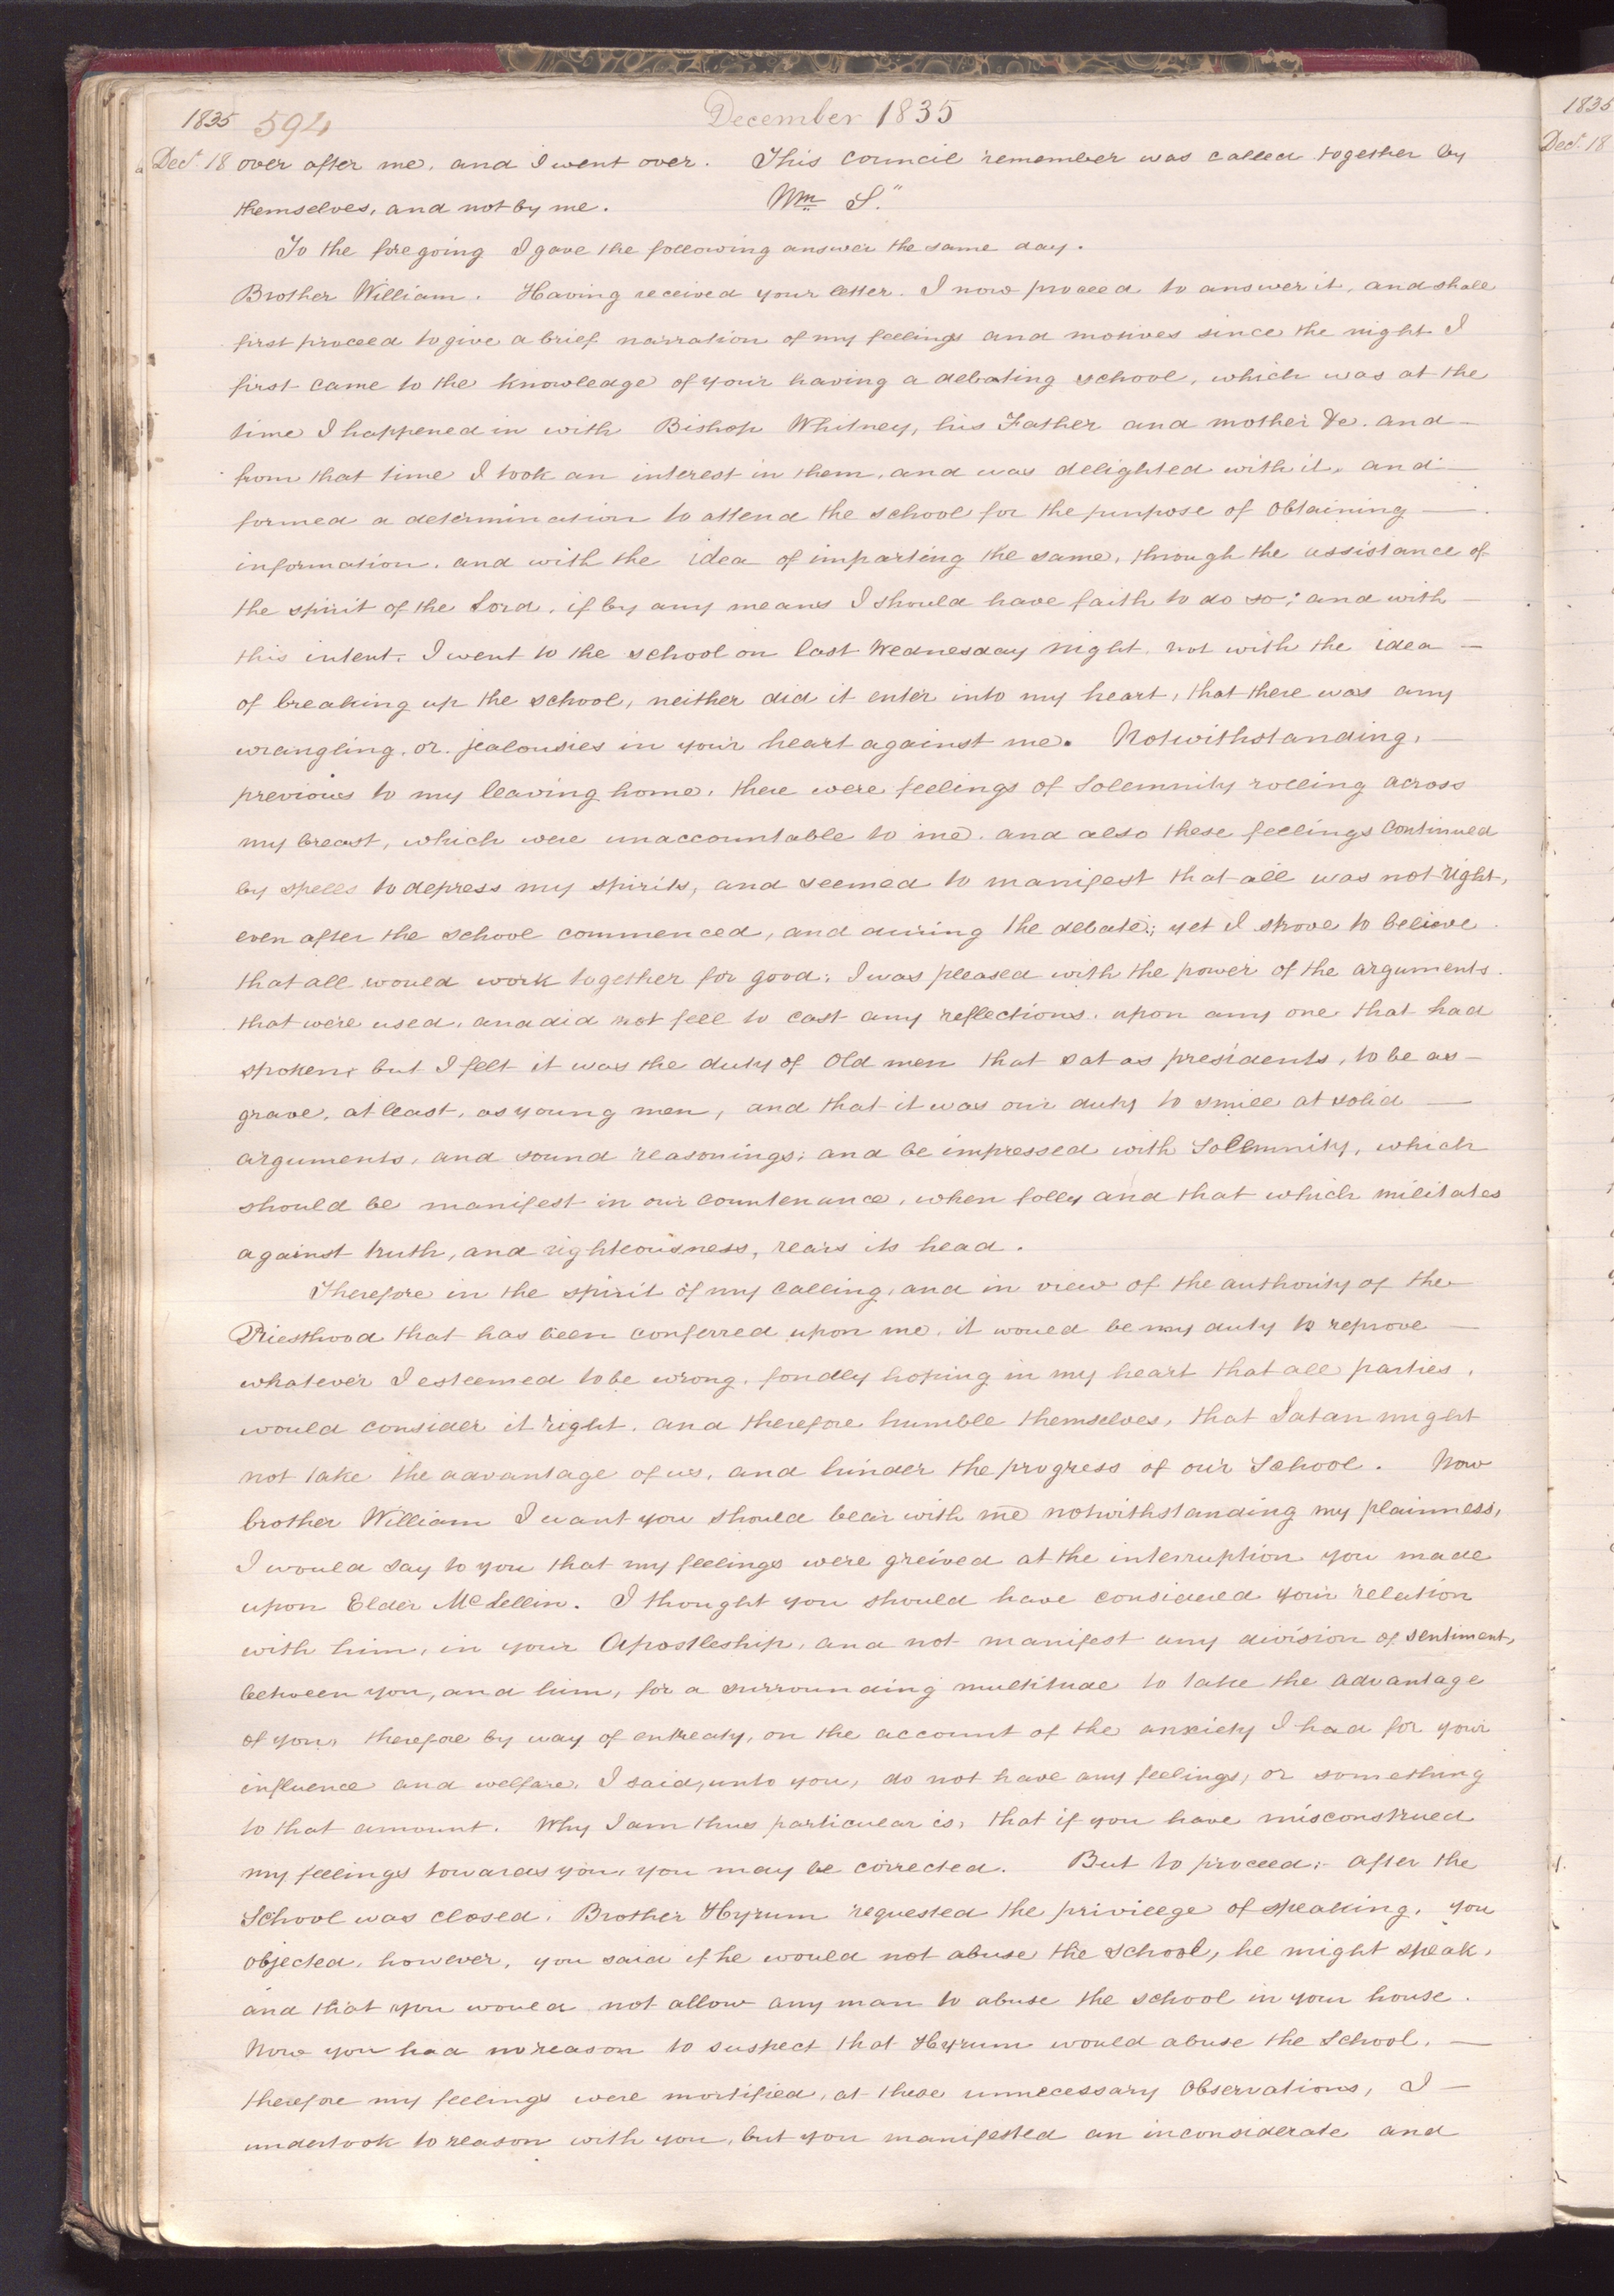 1835 594 December 1835
Decr. 18 over after me, and I went over. This council remember was called together by
themselves, and not by me. Wm S."
To the foregoing I gave the following answer the same day.
Brother William. Having received your letter. I now proceed to answer it, and shall
first proceed to give a brief narration of my feelings and motives since the night I
first came to the knowledge of your having a debating school, which was at the
time I happened in with Bishop Whitney, his Father and mother &c. and—
from that time I took an interest in them, and was delighted with it, and—
formed a determination to attend the school for the purpose of obtaining—
information, and with the idea of imparting the same, through the assistance of
the spirit of the Lord, if by any means I should have faith to do so; and with—
this intent, I went to the school on last Wednesday night, not with the idea—
of breaking up the school, neither did it enter into my heart, that there was any
wrangling, or jealousies in your heart against me. Notwithstanding,—
previous to my leaving home, there were feelings of solemnity rolling across
my breast, which were unaccountable to me, and also these feelings continued
by spells to depress my spirits, and seemed to manifest that all was not right,
even after the school commenced, and during the debate; yet I strove to believe
that all would work together for good; I was pleased with the power of the arguments
that were used, and did not fell to cast any reflections, upon any one that had
spoken; but I felt it was the duty of old men that sat as presidents, to be as—
grave, at least, as young men, and that it was our duty to smile at solid—
arguments, and sound reasonings; and be impressed with solemnity, which
should be manifest in our countenance, when folly and that which militates
against truth, and righteousness, rears its head.
Therefore in the spirit of my calling, and in view of the authority of the
Priesthood that has been conferred upon me, it would be my duty to reprove—
whatever I esteemed to be wrong, fondly hoping in my heart that all parties,
would consider it right, and therefore humble themselves, that Satan might
not take the advantage of us, and hinder the progress of our School. Now
brother William I want you should bear with me notwithstanding my plainness,
I would say to you that my feelings were greived at the interruption you made
upon Elder McLellin. I thought you should have considered your relation
with him, in your Apostleship, and not manifest any division of sentiment,
between you, and him, for a surrounding multitude to take the advantage
of you, therefore by way of entreaty, on the account of the anxiety I had for your
influence and welfare, I said, unto you, do not have any feelings, or something
to that amount. Why I am thus particular is, that if you have misconstrued
my feelings towards you, you may be corrected. But to proceed:- after the
School was closed, Brother Hyrum requested the privilege of speaking, you
objected, however, you said if he would not abuse the school, he might speak,
and that you would not allow any man to abuse the school in your house.
Now you had no reason to suspect that Hyrum would abuse the School,—
therefore my feelings were mortified, at those unnecessary observations, I—
undertook to reason with you, but you manifested an inconsiderate and
1835
Decr. 18